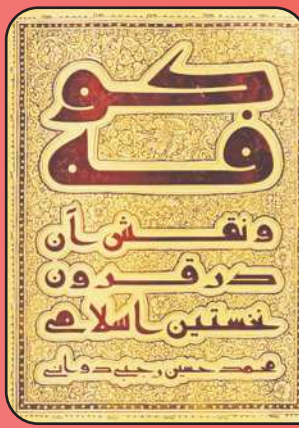 کوفه
و نقش آن
در قرون
نخستین اسلامی
محمد حسین رجبی دوانی